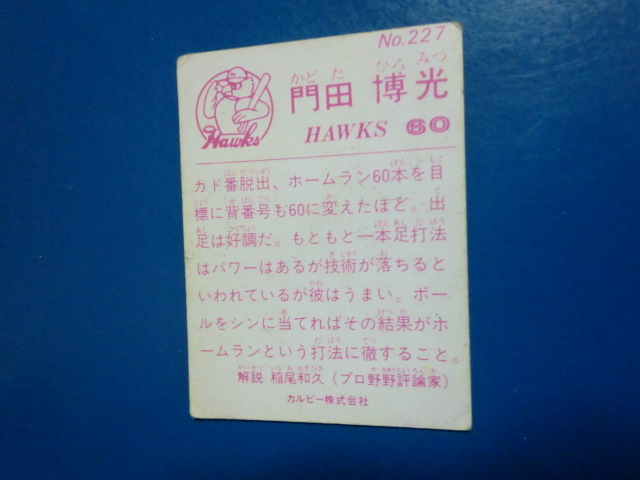 No.227
かどた ひろみつ
門田 博光
Hawks
HAWKS 60
カド番脱出、ホームラン60本を目
標に背番号も60に変えたほど。出
足は好調だ。もともと一本足打法
はパワーはあるが技術が落ちると
いわれているが彼はうまい。ボー
ルをシンに当てればその結果がホ
ームランという打法に徹すること。
解説 稲尾和久(プロ野野評論家)
カルビー株式会社